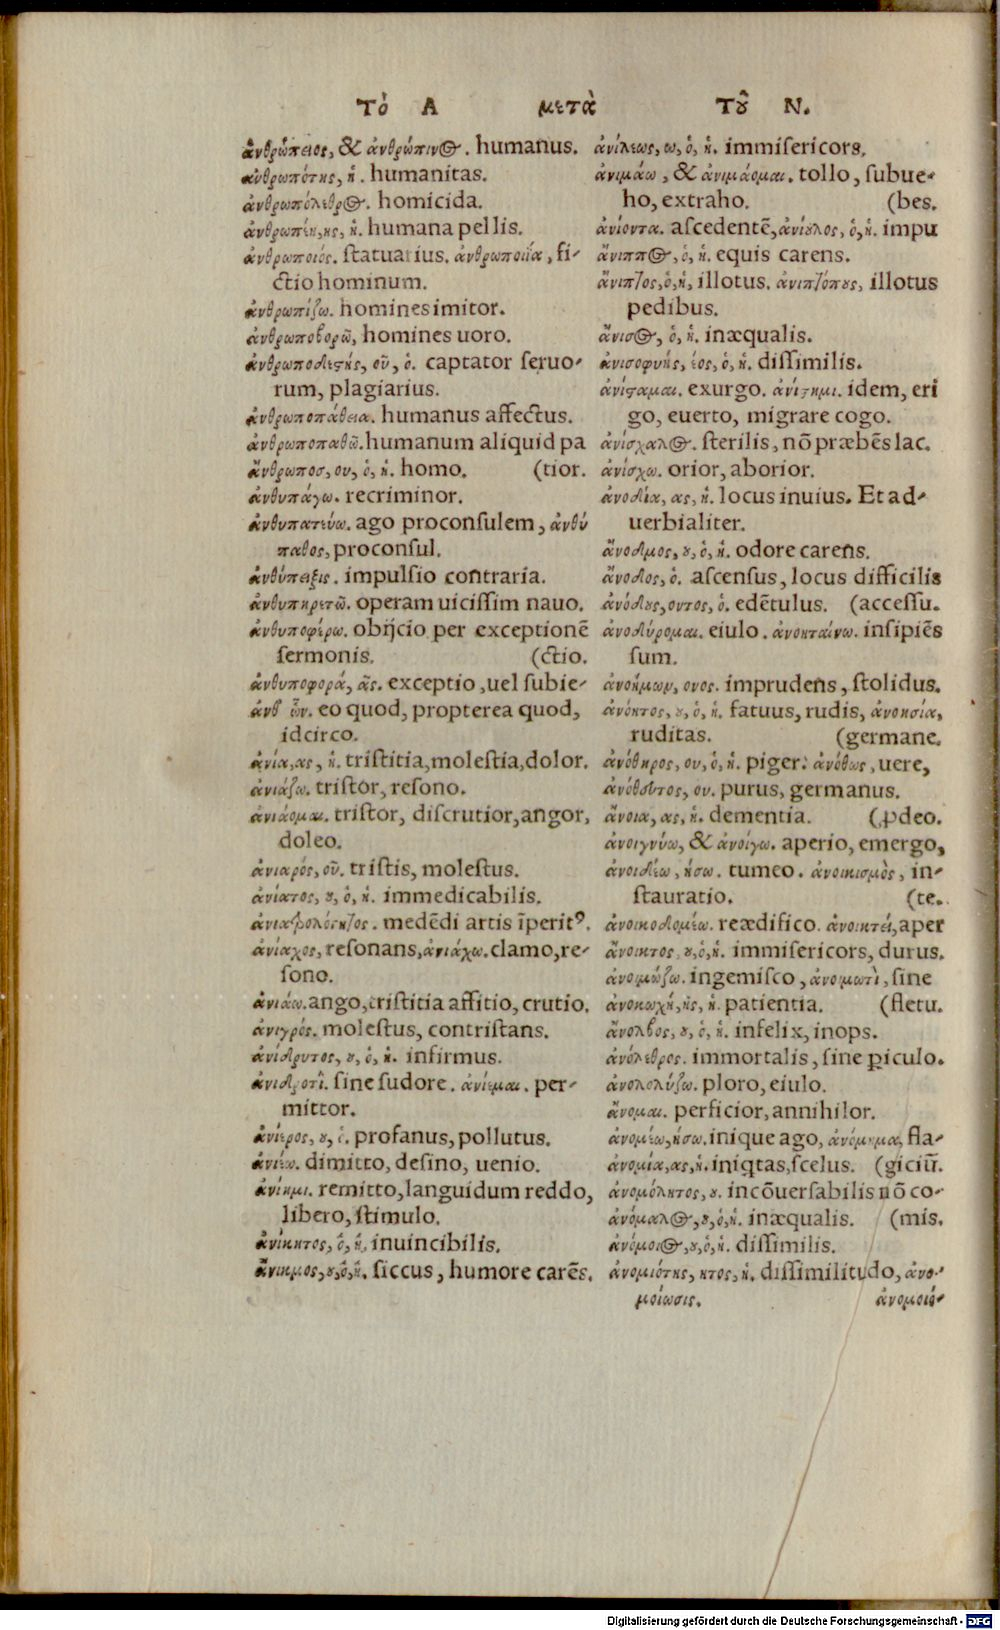 Τὸ Α μετὰ Τοῦ Ν.
ἀνθρώπειος, & ἀνθρώπινος. humanus.
ἀνθρωπότης, ἡ. humanitas.
ἀνθρωπόλεθρος. homicida.
ἀνθρωπέη, ης, ἡ. humana pellis.
ἀνθρωποιός. statuarius. ἀνθρωποιΐα, fi-
ctio hominum.
ἀνθρωπίζω. homines imitor.
ἀνθρωποβορῶ, homines uoro.
ἀνθρωποδεστής, οῦ, ὁ. captator seruo-
rum, plagiarius.
ἀνθρωποπάθεια. humanus affectus.
ἀνθρωποπαθῶ. humanum aliquid pa
ἄνθρωποσ, ου, ὁ, ἡ. homo. (tior.
ἀνθυπάγω. recriminor.
ἀνθυπατεύω. ago proconsulem, ἀνθύ
παθος, proconsul.
ἀνθύπειξις. impulsio contraria.
ἀνθυπηρετῶ. operam uicissim nauo.
ἀνθυποφέρω. obijcio per exceptionē
sermonis. (ctio.
ἀνθυποφορά, ᾶς. exceptio, uel subie-
ἀνθ' ὧν. eo quod, propterea quod,
idcirco.
ἀνία, ας, ἡ. tristitia, molestia, dolor.
ἀνιάζω. tristor, resono.
ἀνιάομαι. tristor, discrutior, angor,
doleo.
ἀνιαρός, οῦ. tristis, molestus.
ἀνίατος, ου, ὁ, ἡ. immedicabilis.
medēdi artis īperitꝰ.
ἀνίαχος, resonans, ἀνιάχω. clamo, re-
sono.
ἀνιάω. ango, tristitia affitio, crutio.
ἀνιγρός. molestus, contristans.
ἀνίδρυτος, ου, ὁ, ἡ. infirmus.
ἀνιδροτί. sine sudore. ἀνίεμαι. per-
mittor.
ἀνίερος, ου, ὁ. profanus, pollutus.
ἀνιέω. dimitto, desino, uenio.
ἀνίημι. remitto, languidum reddo,
libero, stimulo.
ἀνίκητος, ὁ, ἡ, inuincibilis.
ἄνικμος, ου, ὁ, ἡ. siccus, humore carēs.
ἀνίλεως, ω, ὁ, ἡ. immisericors.
ἀνιμάω, & ἀνιμάομαι. tollo, subue-
ho, extraho. (bes.
ἀνίοντα. ascedentē, ἀνίουλος, ὁ, ἡ. impu
ἄνιππος, ὁ, ἡ. equis carens.
ἄνιπτος, ὁ, ἡ, illotus. ἀνιπτόπους, illotus
pedibus.
ἄνισος, ὁ, ἡ. inæqualis.
ἀνισοφυής, έος, ὁ, ἡ. dissimilis.
ἀνίσταμαι. exurgo. ἀνίστημι. idem, eri
go, euerto, migrare cogo.
ἀνίσχαλος. sterilis, nō præbēs lac.
ἀνίσχω. orior, aborior.
ἀνοδία, ας, ἡ. locus inuius. Et ad-
uerbialiter.
ἄνοδμος, ου, ὁ, ἡ. odore carens.
ἄνοδος, ὁ. ascensus, locus difficilis
ἀνόδους, οντος, ὁ. edētulus. (accessu.
ἀνοδύρομαι. eiulo. ἀνοηταίνω. insipiēs
sum.
ἀνοήμων, ονος. imprudens, stolidus.
ἀνόητος, ου, ὁ, ἡ. fatuus, rudis, ἀνοησία,
ruditas. (germane.
ἀνόθηρος, ου, ὁ, ἡ. piger: ἀνόθως, uere,
ἀνόθευτος, ου. purus, germanus.
ἄνοια, ας, ἡ. dementia. (ꝓdeo.
ἀνοιγνύω, & ἀνοίγω. aperio, emergo,
ἀνοιδέω, ήσω. tumeo. ἀνοικισμὸς, in-
stauratio. (te.
ἀνοικοδομέω. reædifico. ἀνοικτεί, aper
ἄνοικτος, ου, ὁ, ἡ. immisericors, durus.
ἀνοιμώζω. ingemisco, ἀνοιμωτὶ, sine
ἀνοκωχή, ῆς, ἡ. patientia. (fletu.
ἄνολβος, ου, ὁ, ἡ. infelix, inops.
ἀνόλεθρος. immortalis, sine ꝑiculo.
ἀνολολύζω. ploro, eiulo.
ἄνομαι. perficior, annihilor.
ἀνομέω, ήσω. inique ago, ἀνόμημα, fla-
ἀνομία, ας, ἡ. iniq̇tas, scelus. (giciū.
ἀνομίλητος, ου. incōuersabilis nō co-
ἀνόμαλος, ου, ὁ, ἡ. inæqualis. (mis.
ἀνόμοιος, ου, ὁ, ἡ. dissimilis.
ἀνομιότης, ητος, ἡ. dissimilitudo, ἀνο-
μοίωσις. ἀνομοιό-
Digitalisierung gefördert durch die Deutsche Forschungsgemeinschaft - DFG